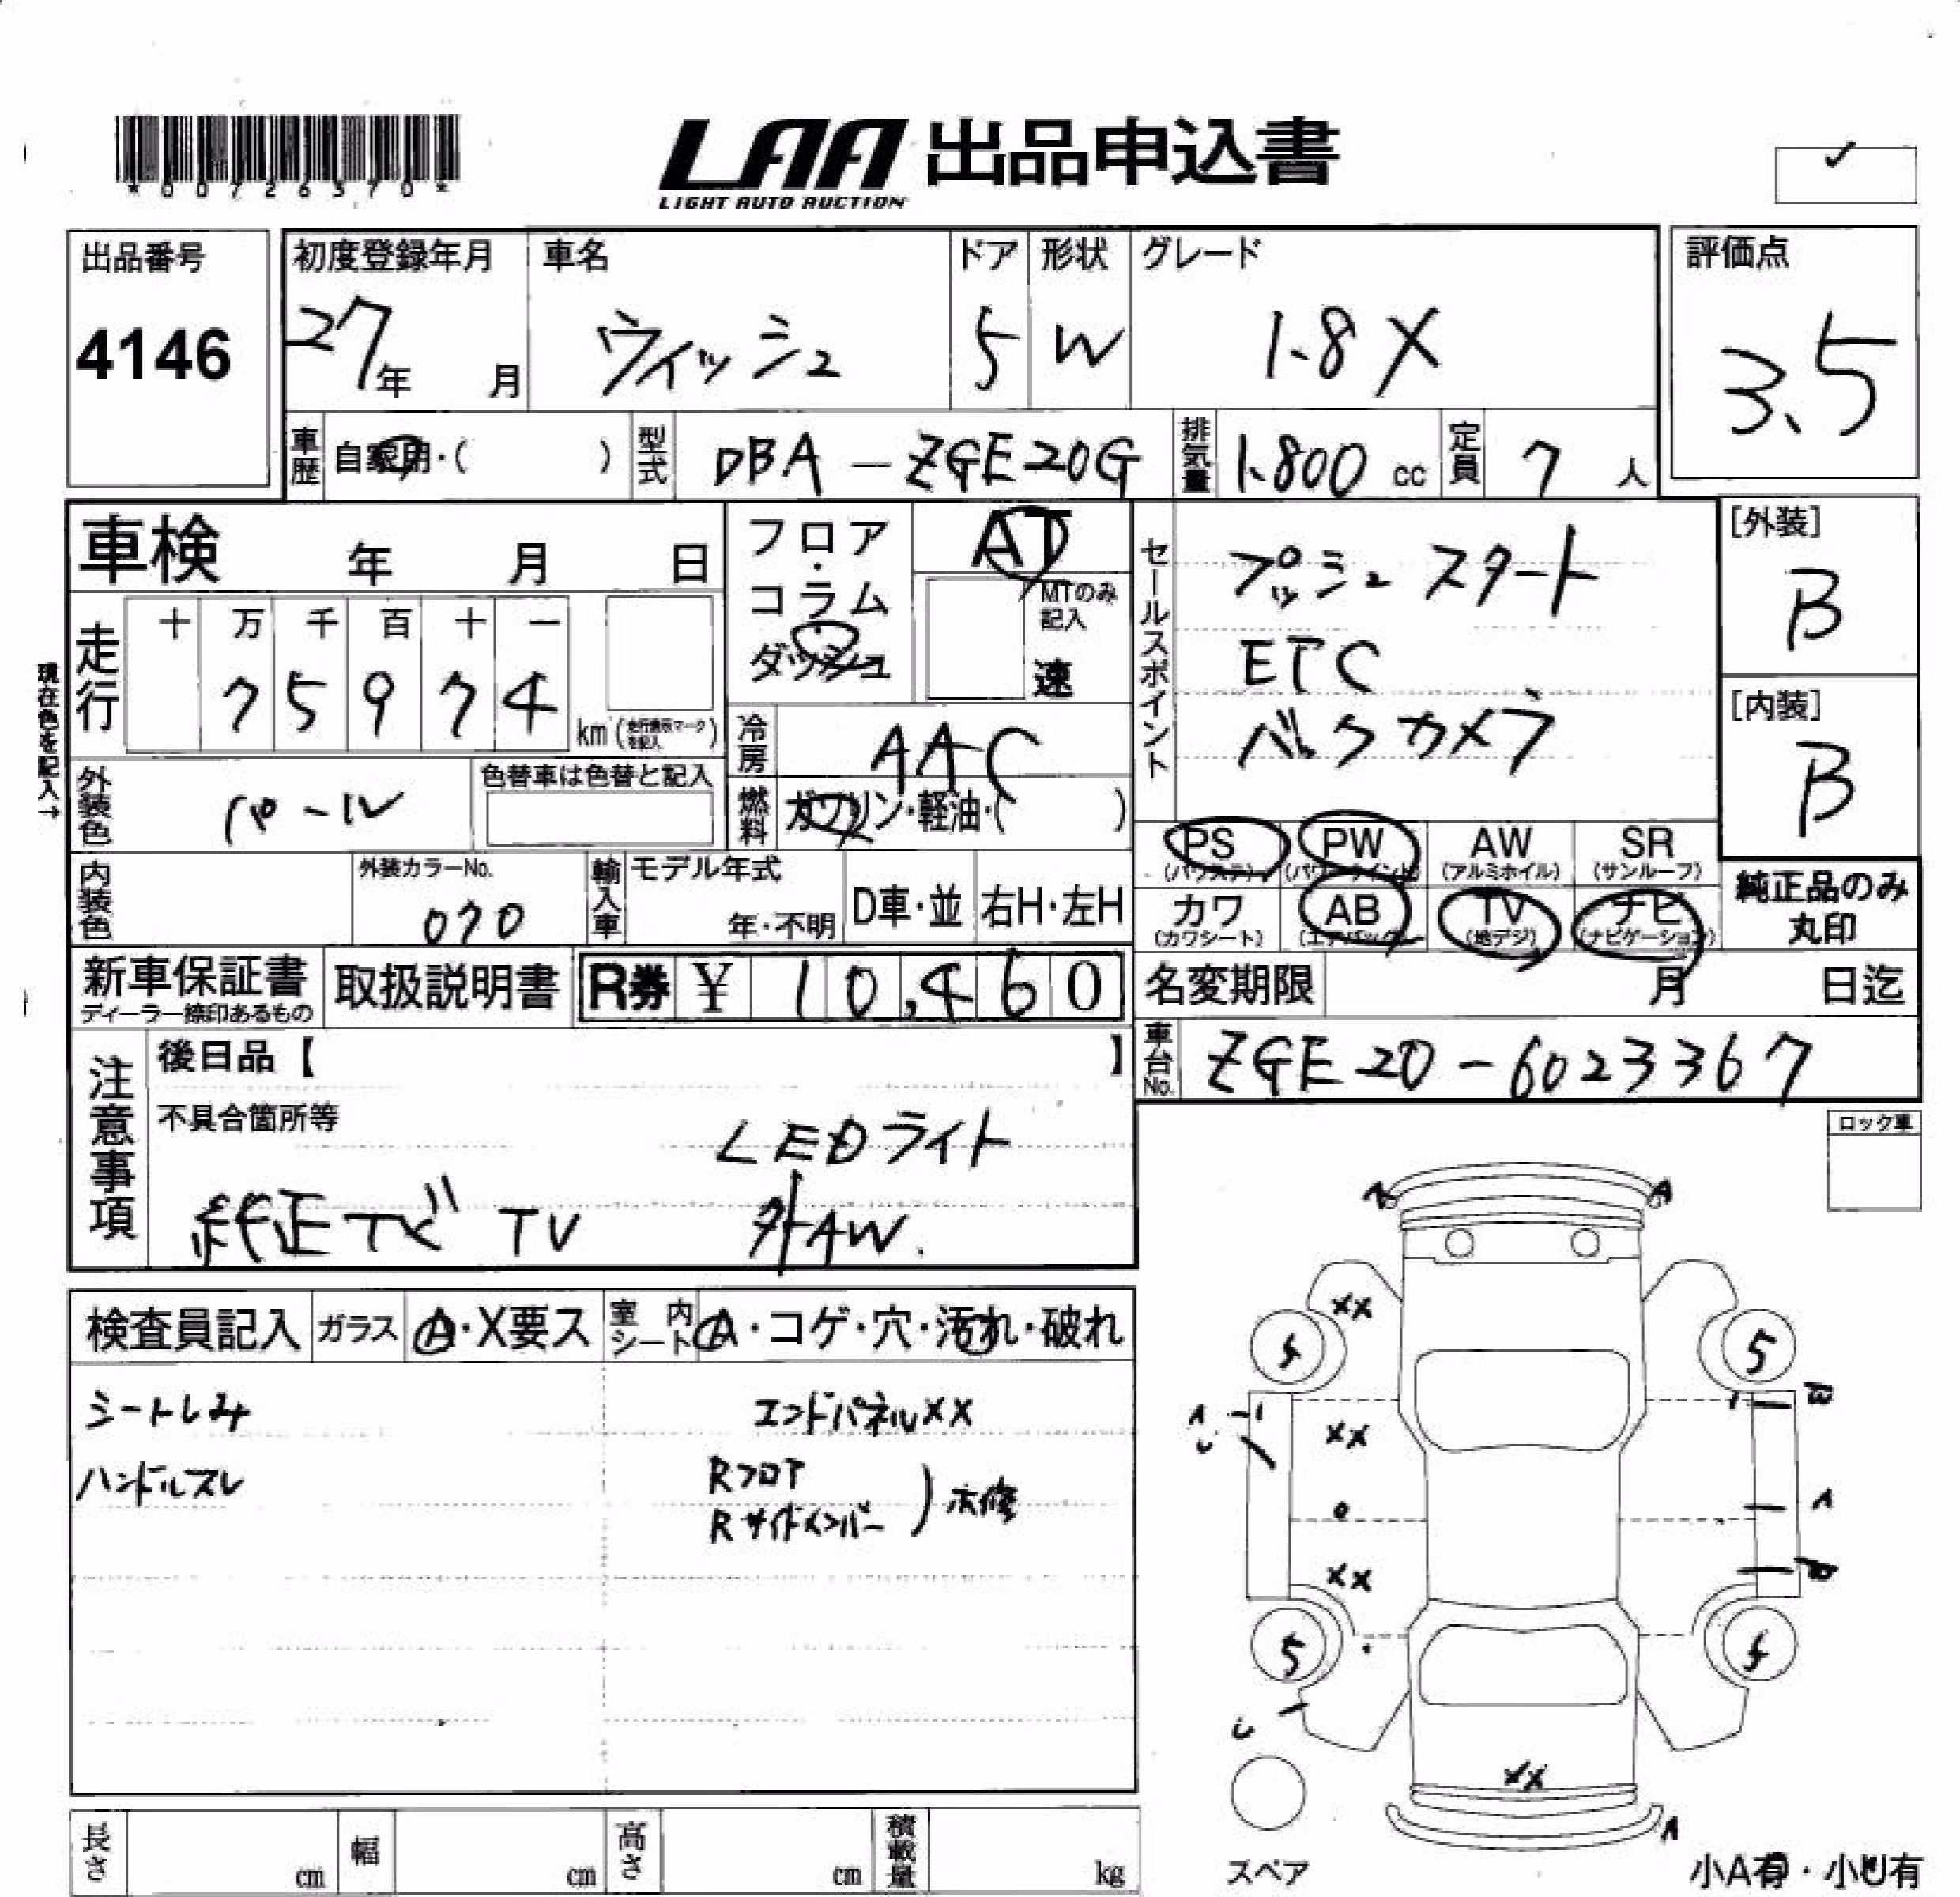 *00726370*
LAA 出品申込書
LIGHT AUTO AUCTION
✓
出品番号 4146
初度登録年月 27年 月
車名 ウィッシュ
ドア 5
形状 W
グレード 1.8X
評価点 3.5
車歴 自家用・( )
型式 DBA-ZGE20G
排気量 1.800 cc
定員 7 人
車検 年 月 日
フロア・コラム・ダッシュ
AT
MTのみ記入 速
セールスポイント
プッシュスタート
ETC
バックカメラ
[外装] B
[内装] B
現在色を記入→
走行 十 万 千 百 十 一
75974 km (走行表示マークを記入)
冷房 AAC
燃料 ガソリン・軽油・( )
外装色 パール
色替車は色替と記入
内装色
外装カラーNo. 070
輸入車 モデル年式 年・不明
D車・並 右H・左H
PS (パワステ) PW (パワーウインド) AW (アルミホイル) SR (サンルーフ)
カワ (カワシート) AB (エアバック) TV (地デジ) ナビ (ナビゲーション)
純正品のみ丸印
新車保証書 ディーラー捺印あるもの
取扱説明書
R券 ¥ 10,460
名変期限 月 日迄
車台No. ZGE20-6023367
注意事項
後日品【 】
不具合箇所等
LEDライト
純正ナビ TV 外AW.
ロック車
検査員記入
ガラス A・X要ス
室内シート A・コゲ・穴・汚れ・破れ
シートしみ
ハンドルスレ
エンドパネルXX
Rフロア
Rサイドメンバー ) 補修
A A
XX
5
A
U
XX
A
XX
5
U
XX
A
スペア
小A有・小U有
長さ cm
幅 cm
高さ cm
積載量 kg